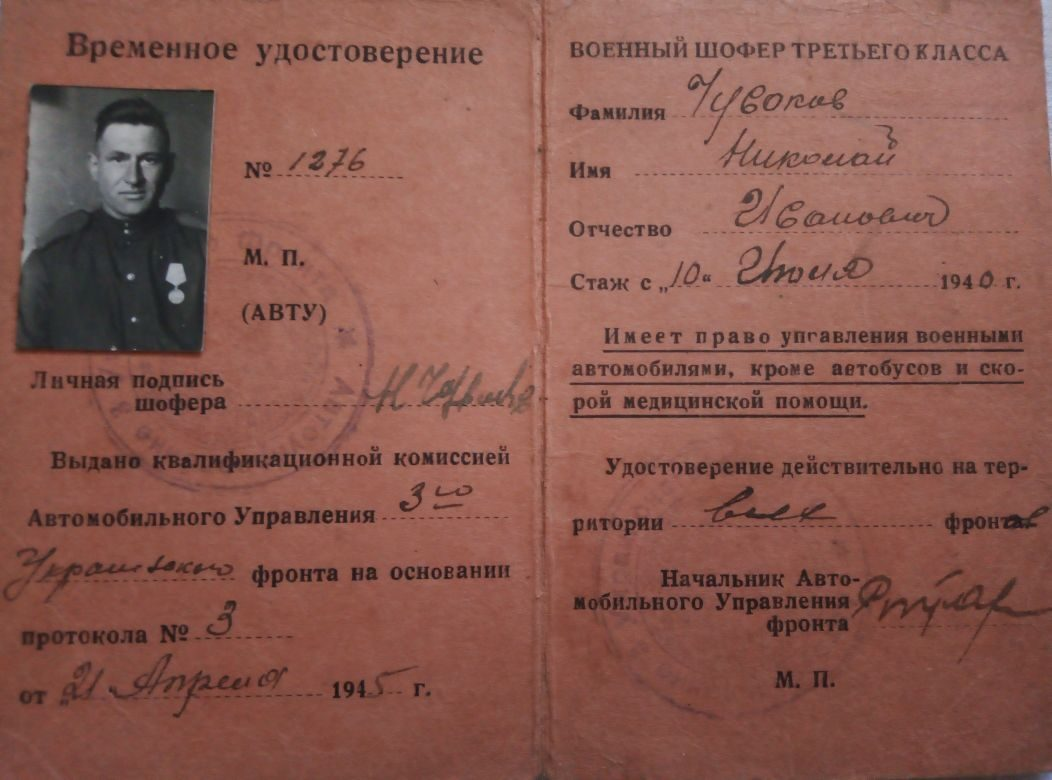 Временное удостоверение
№ 1276
М. П.
(АВТУ)
Личная подпись
шофера
Выдано квалификационной комиссией
Автомобильного Управления 3го
Украинского фронта на основании
протокола № 3
от „21 Апреля 1945 г.
ВОЕННЫЙ ШОФЕР ТРЕТЬЕГО КЛАССА
Фамилия
Имя Николай
Отчество Иванович
Стаж с „10“ Июля 1940 г.
Имеет право управления военными
автомобилями, кроме автобусов и ско-
рой медицинской помощи.
Удостоверение действительно на тер-
ритории всех фронтов
Начальник Авто-
мобильного Управления
фронта
М. П.